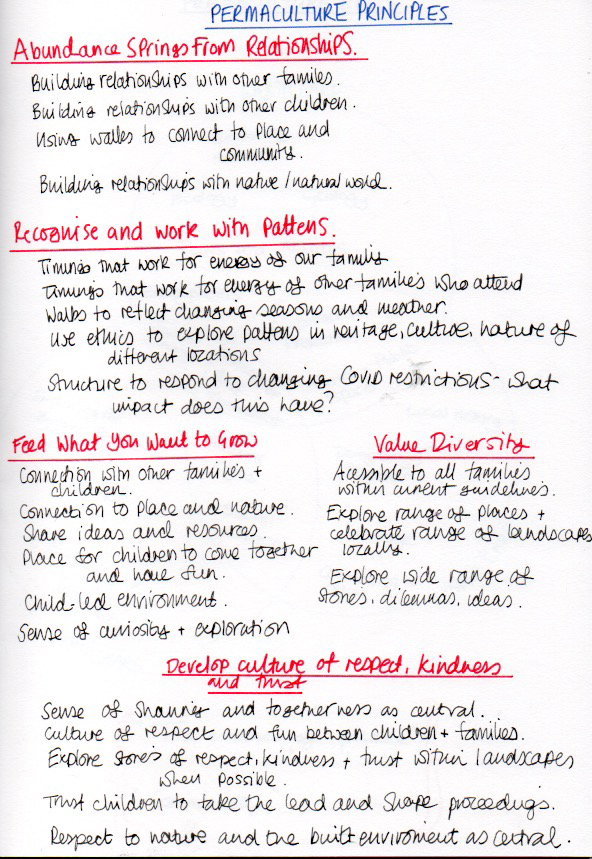 PERMACULTURE PRINCIPLES
Abundance Springs From Relationships.
Building relationships with other familes.
Building relationships with other children.
Using walks to connect to place and
community.
Building relationships with nature/natural world.
Recognise and work with Pattens.
Timings that work for energy of our family
Timings that work for energy of other families who attend
Walks to reflect changing seasons and weather.
Use ethics to explore pattens in heritage, culture, nature of
different locations
Structure to respond to changing Covid restrictions - what
impact does this have?
Feed What You Want to Grow
Connection with other families +
children.
Connection to place and nature.
Share ideas and resources.
Place for children to come together
and have fun.
Child-led environment.
Sense of curiosity + exploration
Value Diversity
Acessible to all families
within current guidelines.
Explore range of places +
celebrate range of landscapes
locally.
Explore wide range of
stories, dilemmas, ideas.
Develop culture of respect, kindness
and trust
Sense of sharing and togetherness as central.
Culture of respect and fun between children + families.
Explore stories of respect, kindness + trust within landscapes
when possible.
Trust children to take the lead and shape proceedings.
Respect to nature and the built enviroment as central.